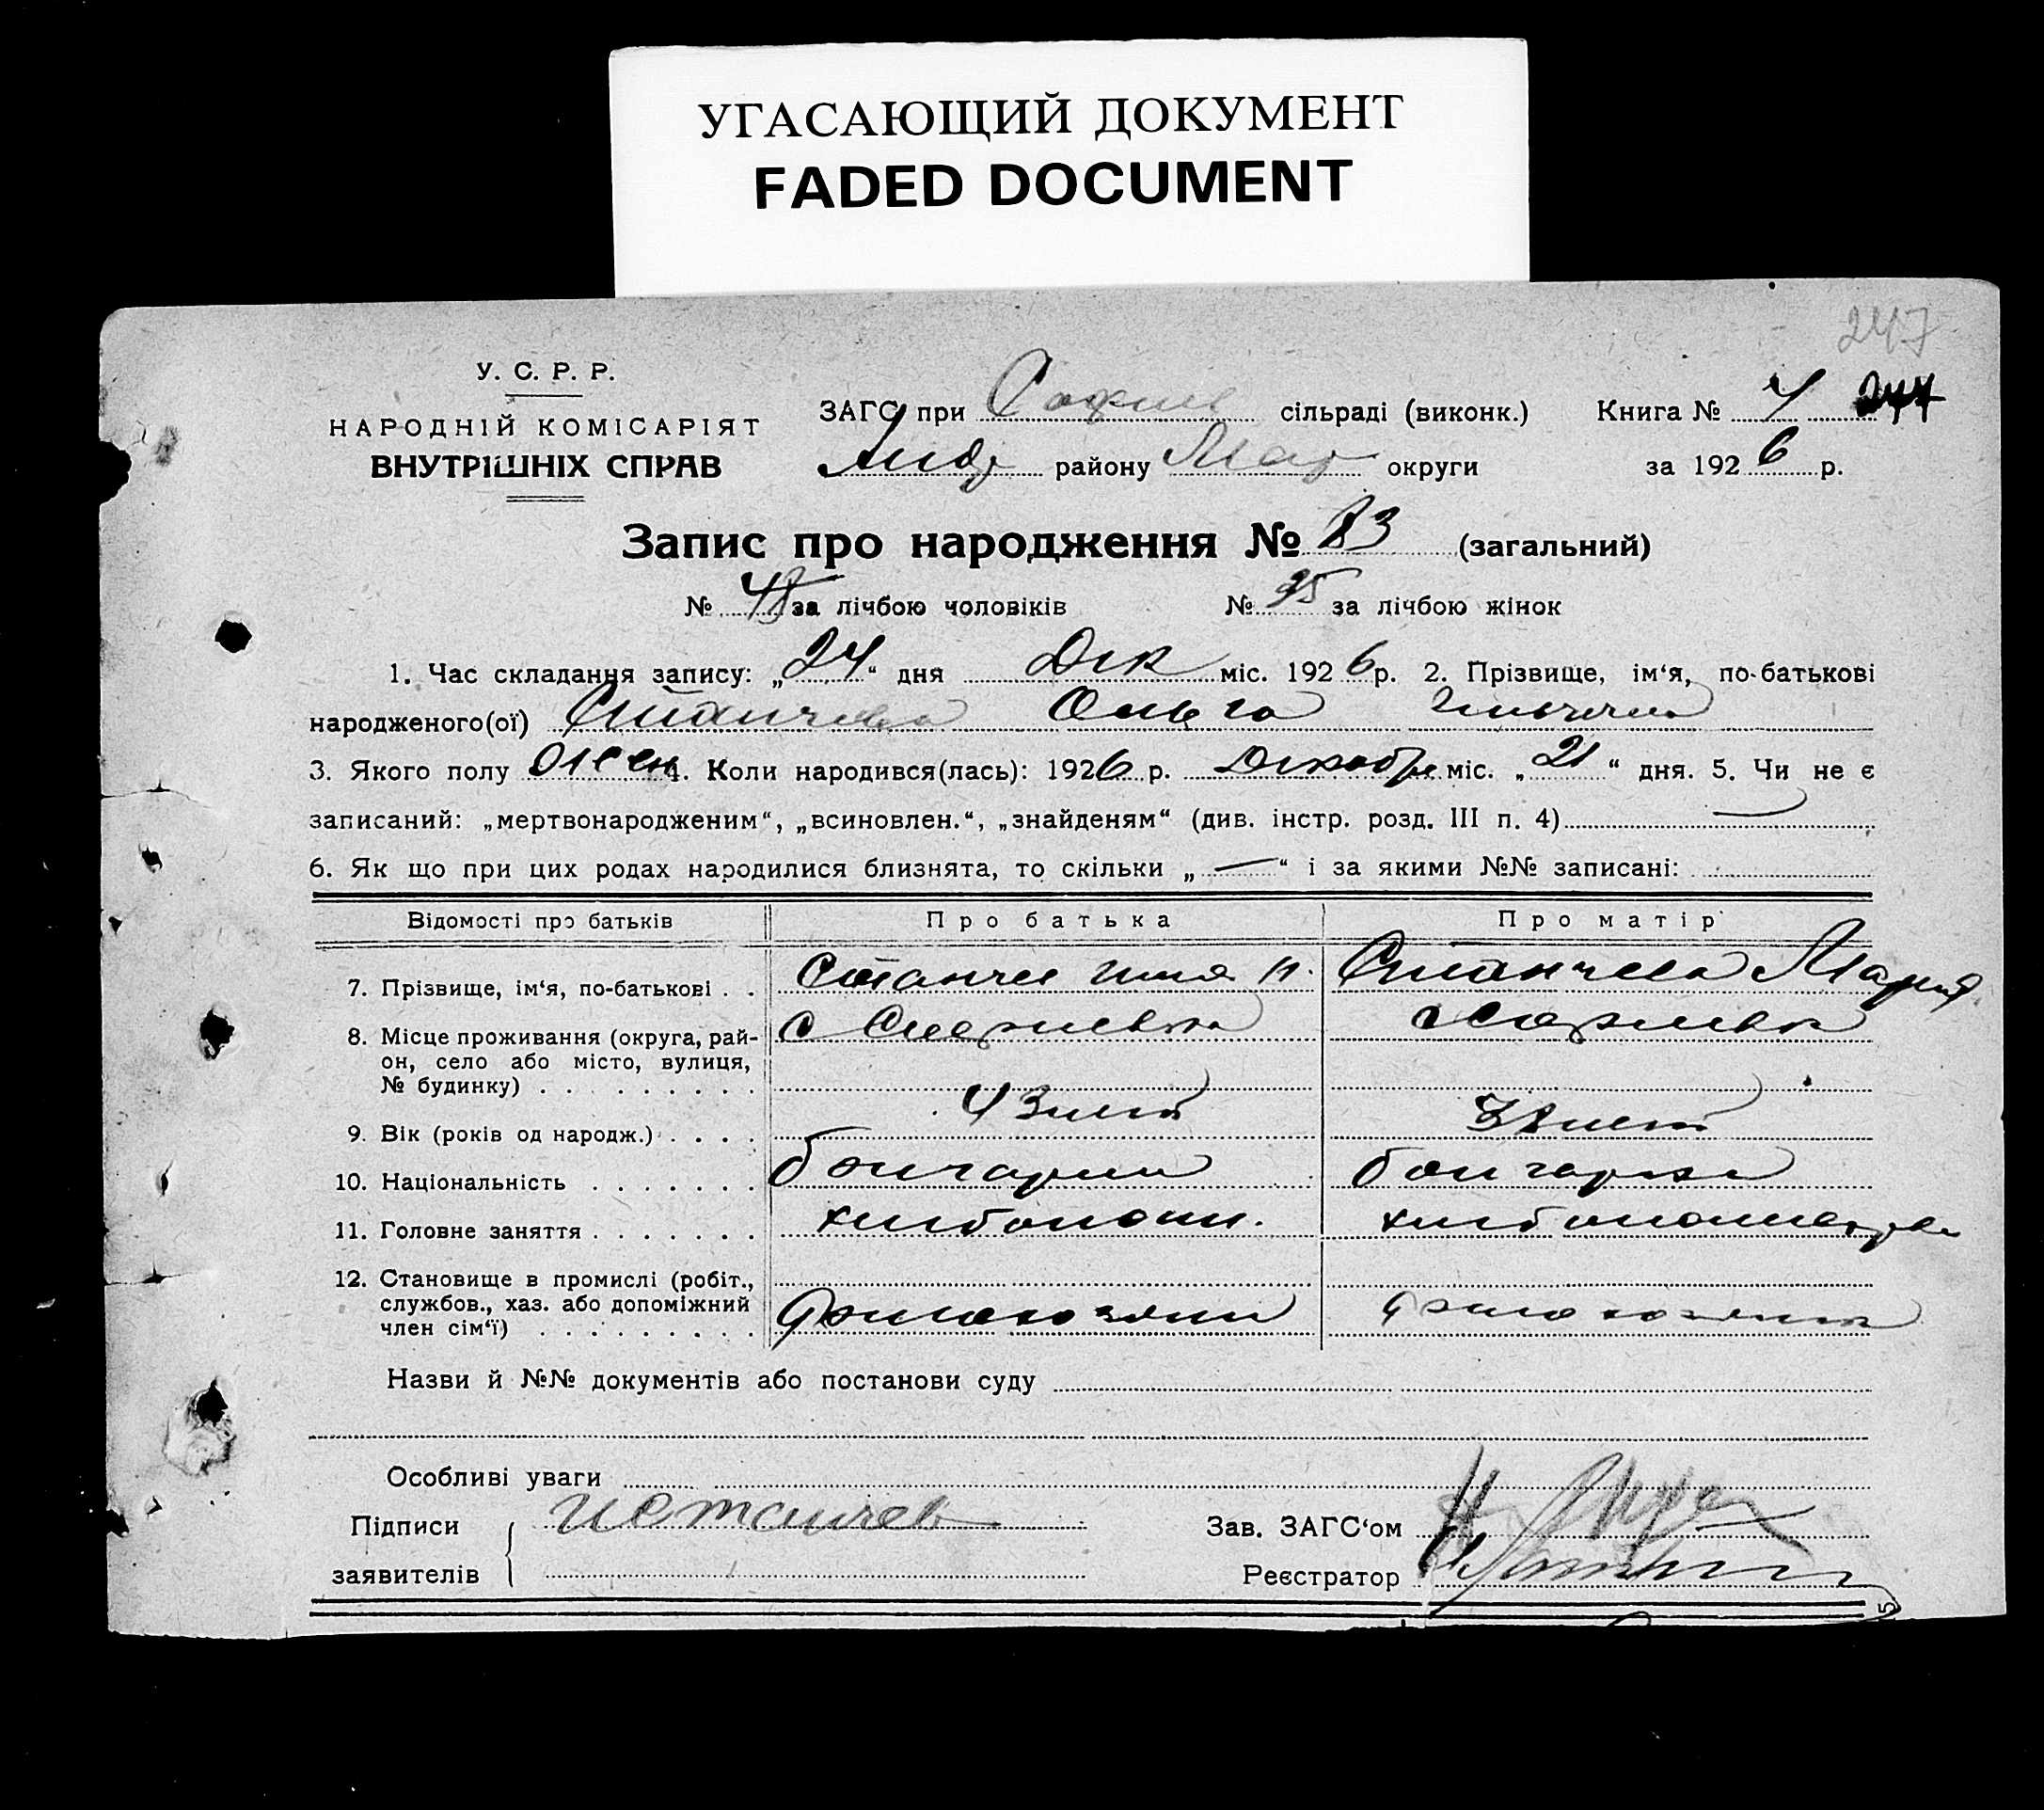 УГАСАЮЩИЙ ДОКУМЕНТ
FADED DOCUMENT
247
У. С. Р. Р.
НАРОДНІЙ КОМІСАРІЯТ
ВНУТРІШНІХ СПРАВ
ЗАГС при Софиев сільраді (виконк.) Книга №
району Мар округи за 1926 р.
Запис про народження № 83 (загальний)
№ 48 за лічбою чоловіків № 35 за лічбою жінок
1. Час складання запису: „24“ дня Дек міс. 1926 р. 2. Прізвище, ім‘я, по-батькові
народженого(ої) Станчева Ольга Ильична
3. Якого полу жен 4. Коли народився(лась): 1926 р. Декабре міс. „21“ дня. 5. Чи не є
записаний: „мертвонародженим“, „всиновлен.“, „знайденям“ (див. інстр. розд. III п. 4) —
6. Як що при цих родах народилися близнята, то скільки „—“ і за якими №№ записані:
Відомості про батьків Про батька Про матір
7. Прізвище, ім‘я, по-батькові . . Станчев Илья Н. Станчева Мария
8. Місце проживання (округа, рай-
он, село або місто, вулиця,
№ будинку) . . . . . . . . . с Софиевка с Софиевка
9. Вік (років од народж.) . . . . 43 лет лет
10. Національність . . . . . . . болгарин болгарка
11. Головне заняття . . . . . . . хлебопаш.
12. Становище в промислі (робіт.,
службов., хаз. або допоміжний
член сім‘ї) . . . . . . . . .
Назви й №№ документів або постанови суду
Особливі уваги
Підписи И Станчев Зав. ЗАГС‘ом
заявителів Реєстратор